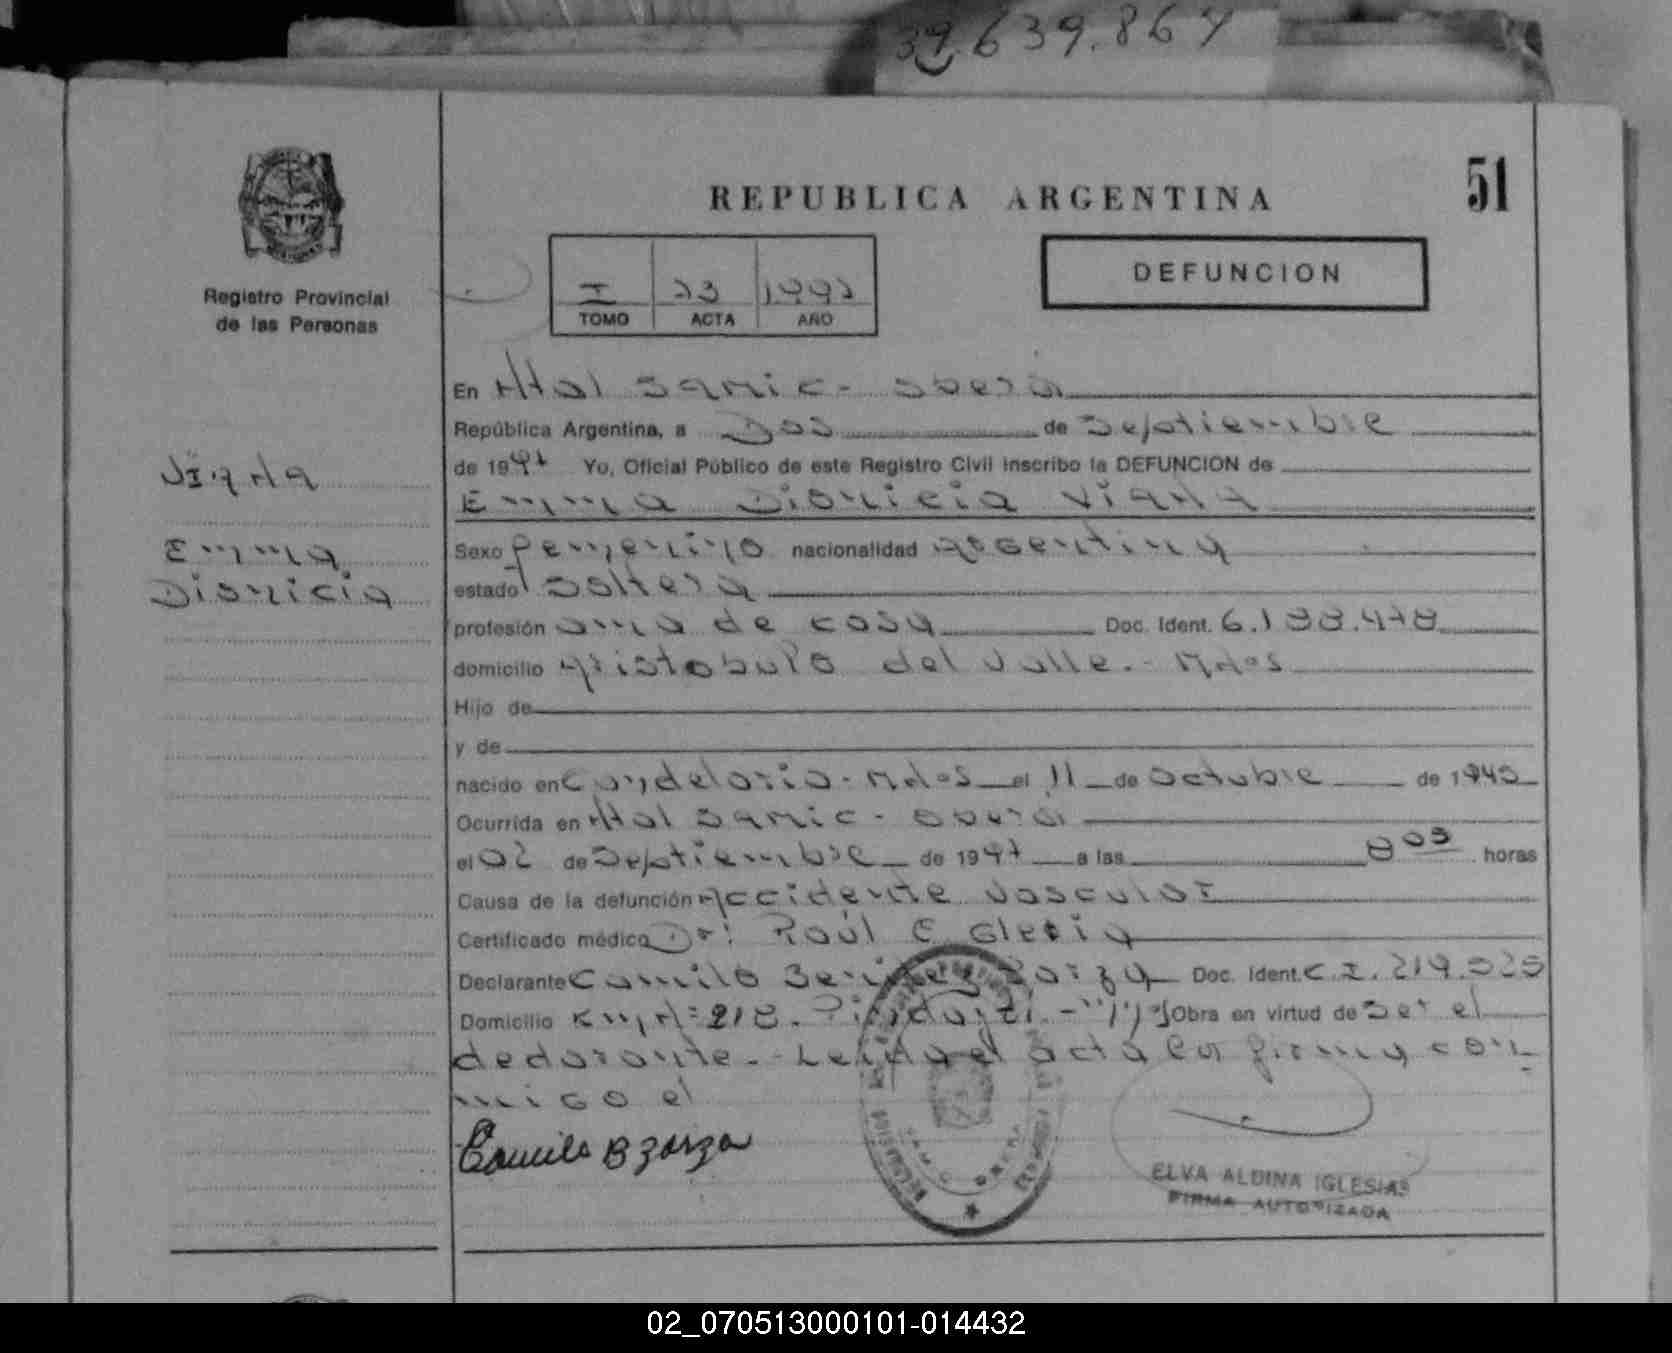 39.639.864
51
REPUBLICA ARGENTINA
Registro Provincial
de las Personas
I 23 1997
TOMO ACTA AÑO
DEFUNCION
En Htal Samic - Oberá
República Argentina, a Dos de Septiembre
de 1997 Yo, Oficial Público de este Registro Civil inscribo la DEFUNCION de
Emma Dionicia Viana
Viana
Emma
Dionicia
Sexo femenino nacionalidad argentina
estado soltera
profesión ama de casa Doc. Ident. 6.188.478
domicilio Aristobulo del Valle.- Mnes
Hijo de
y de
nacido en Candelaria - Mnes el 11 de octubre de 1945
Ocurrida en Htal Samic - Oberá
el 02 de Septiembre de 1997 a las 8 05 horas
Causa de la defunción Accidente vascular
Certificado médico Dr: Raúl E Gleria
Declarante Camilo Benitez Zarza Doc. Ident. C.I. 219.525
Domicilio Km Nº 218. Pindaytí.- Obra en virtud de ser el
declarante.- Leida el acta la firma con-
migo el
Camilo B Zarza
ELVA ALDINA IGLESIAS
FIRMA AUTORIZADA
02_070513000101-014432